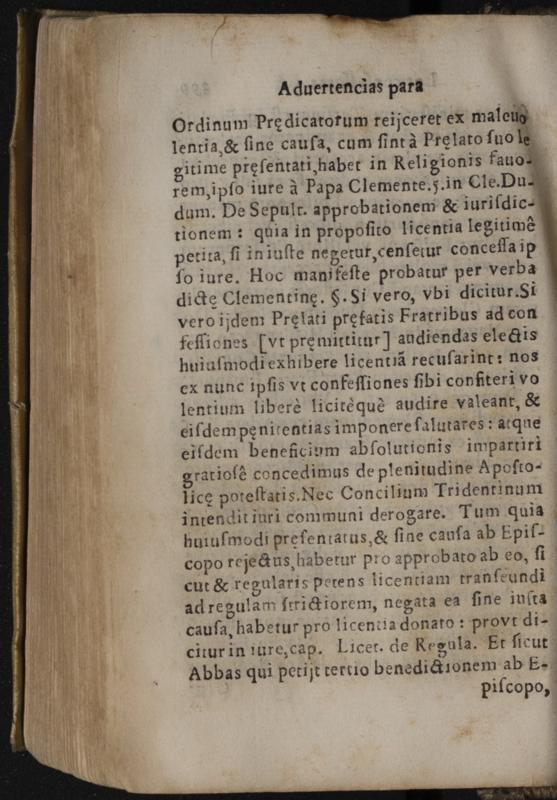 Aduertencias para
Ordinum Prędicatorum reijceret ex maleuo
lentia,& ſine cauſa, cum ſint à Pręlato ſuo le
gitime pręſentati,habet in Religionis fauo-
rem,ipſo iure à Papa Clemente.5.in Cle.Du-
dum. De Sepult. approbationem & iuriſdic-
tionem : quia in propoſito licentia legitimê
petita, ſi iniuſte negetur,cenſetur conceſſa ip
ſo iure. Hoc manifeſte probatur per verba
dictę Clementinę. §. Si vero, vbi dicitur.Si
vero ijdem Pręlati pręfatis Fratribus ad con
feſſiones [vt pręmittitur] audiendas electis
huiuſmodi exhibere licentiã recuſarint: nos
ex nunc ipſis vt confeſſiones ſibi confiteri vo
lentium liberè licitèquè audire valeant, &
eiſdem pęnitentias imponere ſalutares : atque
eiſdem beneficium abſolutionis impartiri
gratioſê concedimus de plenitudine Apoſto-
licę poteſtatis.Nec Concilium Tridentinum
intendit iuri communi derogare. Tum quia
huiuſmodi pręſentatus,& ſine cauſa ab Epiſ-
copo rejectus,habetur pro approbato ab eo, ſi
cut & regularis petens licentiam tranſeundi
ad regulam ſtrictiorem, negata ea ſine iuſta
cauſa, habetur pro licentia donato : provt di-
citur in iure,cap. Licet. de Regula. Et ſicut
Abbas qui petijt tertio benedictionem ab E-
piſcopo,